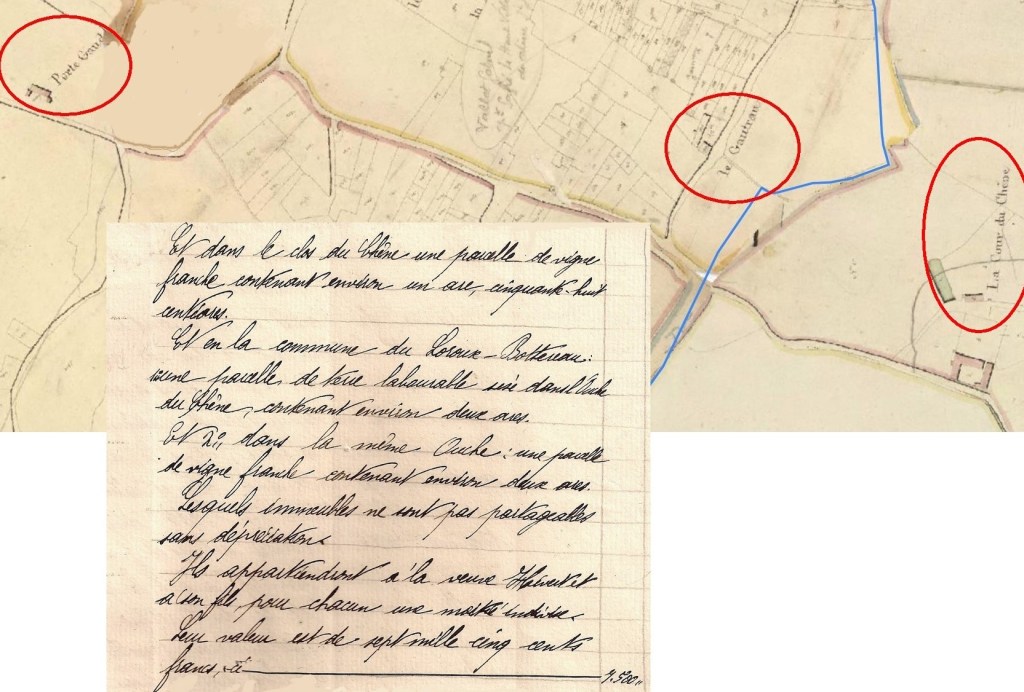 Porte Gaud
le Gautrau
La Tour du Chêne
la
Et dans le clos du Chêne une parcelle de vigne
franche contenant environ un are, cinquante-huit
centiares.
Et en la commune du Loroux-Bottereau:
une parcelle de terre labourable sise dans l'Ouche
du Chêne, contenant environ deux ares.
Et 2°, dans la même Ouche: une parcelle
de vigne franche contenant environ deux ares.
Lesquels immeubles ne sont pas partageables
sans dépréciation.
Ils appartiendront à la veuve et
à son fils, pour chacun une moitié indivise.
Leur valeur est de sept mille cinq cents
francs, ci 7.500,,